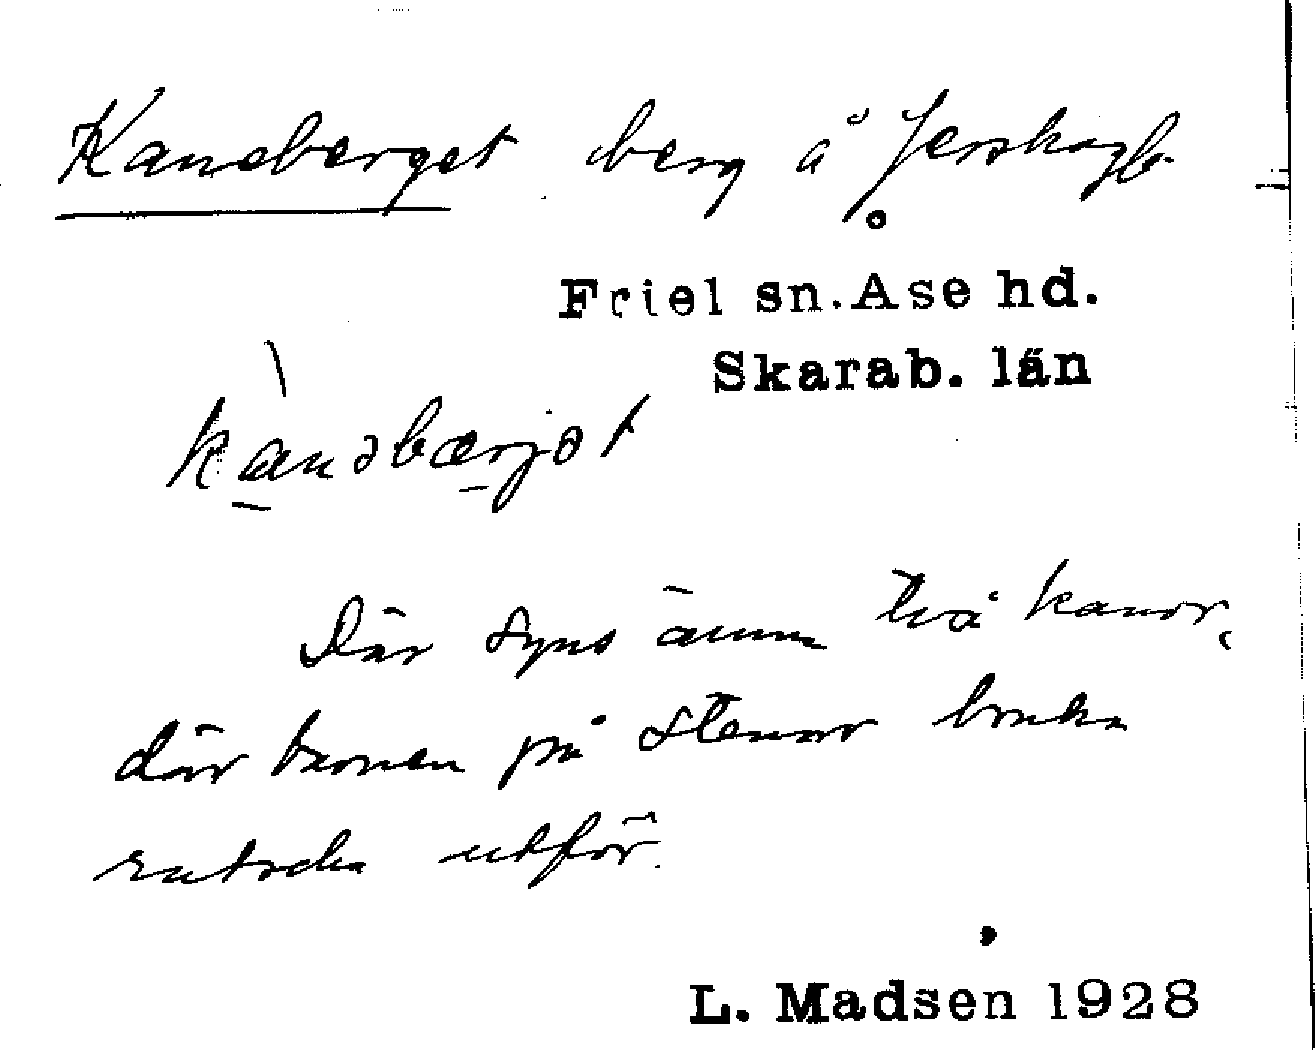 Kaneberget berg å Jerskogb.
Friel sn. Åse hd.
Skarab. län
kanəbærjət
Där syns ännu två kanor,
där barnen på stenar bruka
rutscha utför.
L. Madsen 1928